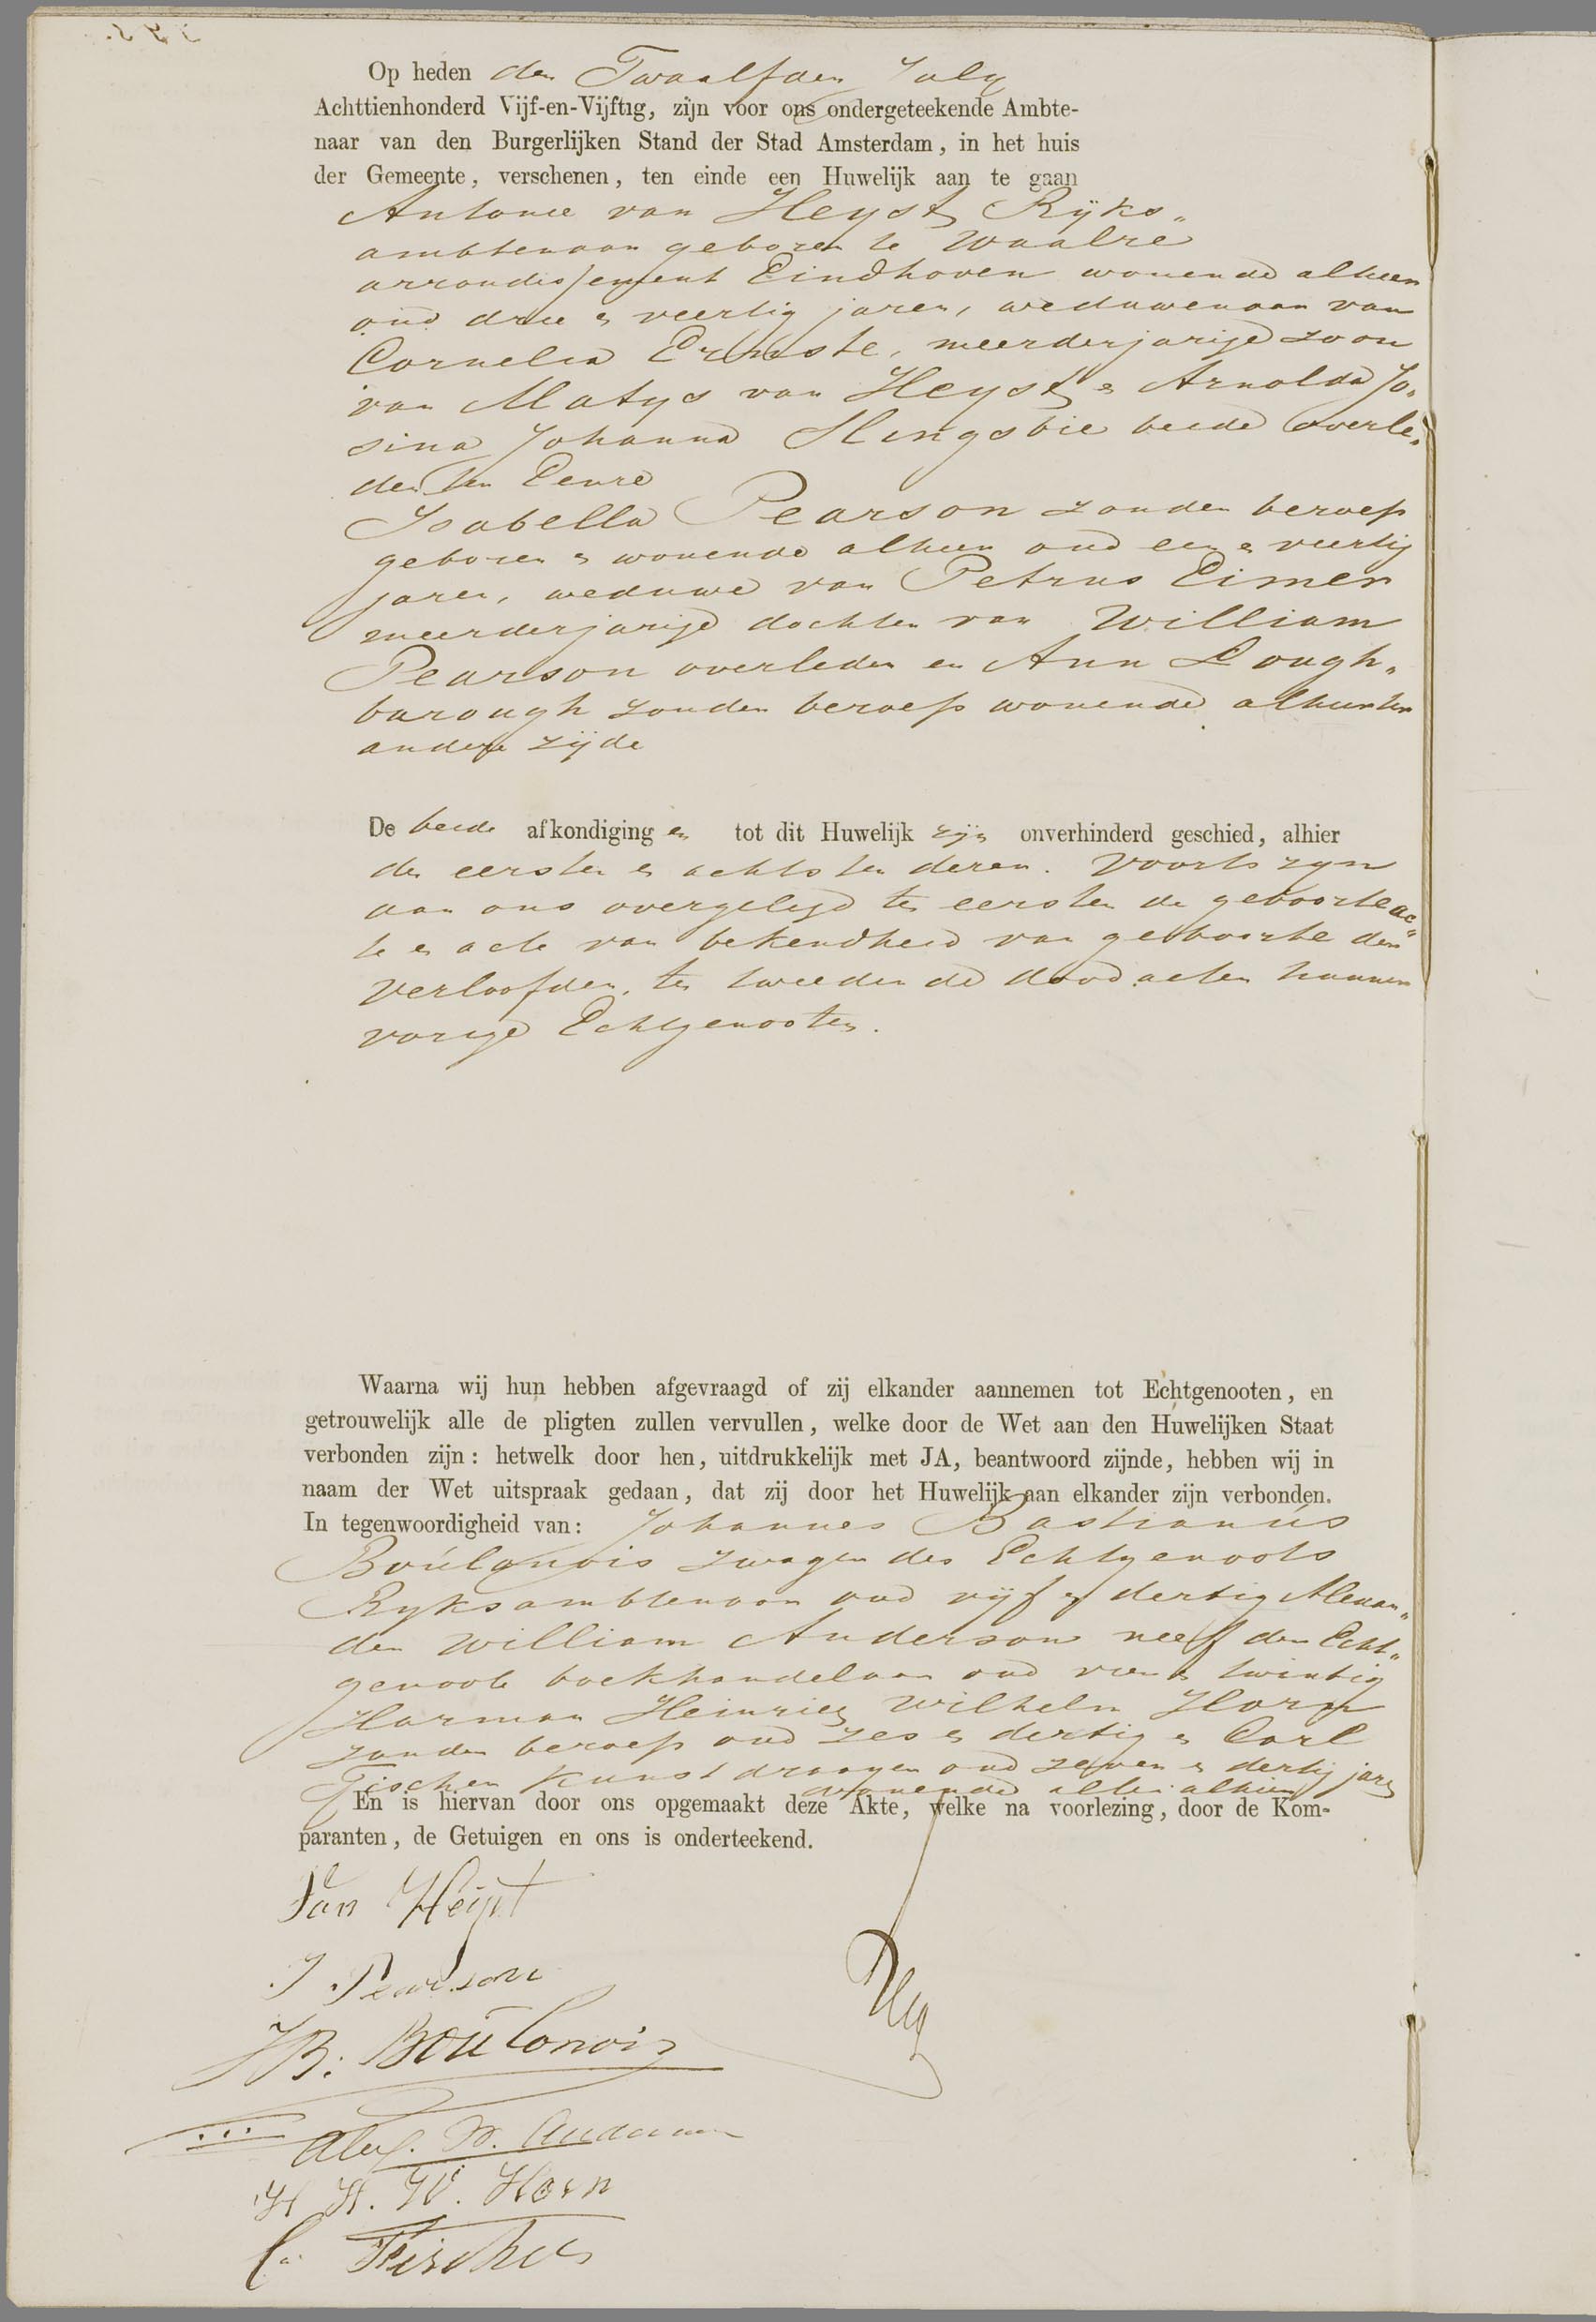 Op heden den Twaalfden July
Achttienhonderd Vijf-en-Vijftig, zijn voor ons ondergeteekende Ambte-
naar van den Burgerlijken Stand der Stad Amsterdam, in het huis
der Gemeente, verschenen, ten einde een Huwelijk aan te gaan
Antonie van Heyst, Ryks„
ambtenaar geboren te Waalre
arrondissement Eindhoven wonende alhier
oud drie en veertig jaren, weduwenaar van
Cornelia Ernste, meerderjarige zoon
van Matys van Heyst en Arnolda Jo„
sina Johanna Slingsbie beide overle„
den ten Eenre
Isabella Pearson zonder beroep
geboren en wonende alhier oud een en veertig
jaren, weduwe van Petrus Eimer
meerderjarige dochter van William
Pearson overleden en Ann Lough„
borough zonder beroep wonende alhier ter
andere zijde
De beide afkondiging en tot dit Huwelijk zijn onverhinderd geschied, alhier
den eersten en achtsten dezer. Voorts zyn
aan ons overgelegd ten eersten de geboorteac„
te en acte van bekendheid van geboorte der
verloofden, ten tweeden de dood acten hunner
vorige Echtgenooten.
Waarna wij hun hebben afgevraagd of zij elkander aannemen tot Echtgenooten, en
getrouwelijk alle de pligten zullen vervullen, welke door de Wet aan den Huwelijken Staat
verbonden zijn: hetwelk door hen, uitdrukkelijk met JA, beantwoord zijnde, hebben wij in
naam der Wet uitspraak gedaan, dat zij door het Huwelijk aan elkander zijn verbonden.
In tegenwoordigheid van: Johannes Bastianús
Boúlonois zwager des Echtgenoots
Ryksambtenaar oud vijf en dertig Alexan„
der William Anderson neef der Echt„
genoote boekhandelaar oud vier en twintig
Harman Heinrich Wilhelm Horn
zonder beroep oud zes en dertig en Carl
Fischer kunstdraayer oud zeven en dertig jaren
wonende allen alhier
En is hiervan door ons opgemaakt deze Akte, welke na voorlezing, door de Kom-
paranten, de Getuigen en ons is onderteekend.
Van Heijst
I Pearson
JB: Boulonois
Alex. W. Anderson
H H. W. Horn
C. Fischer